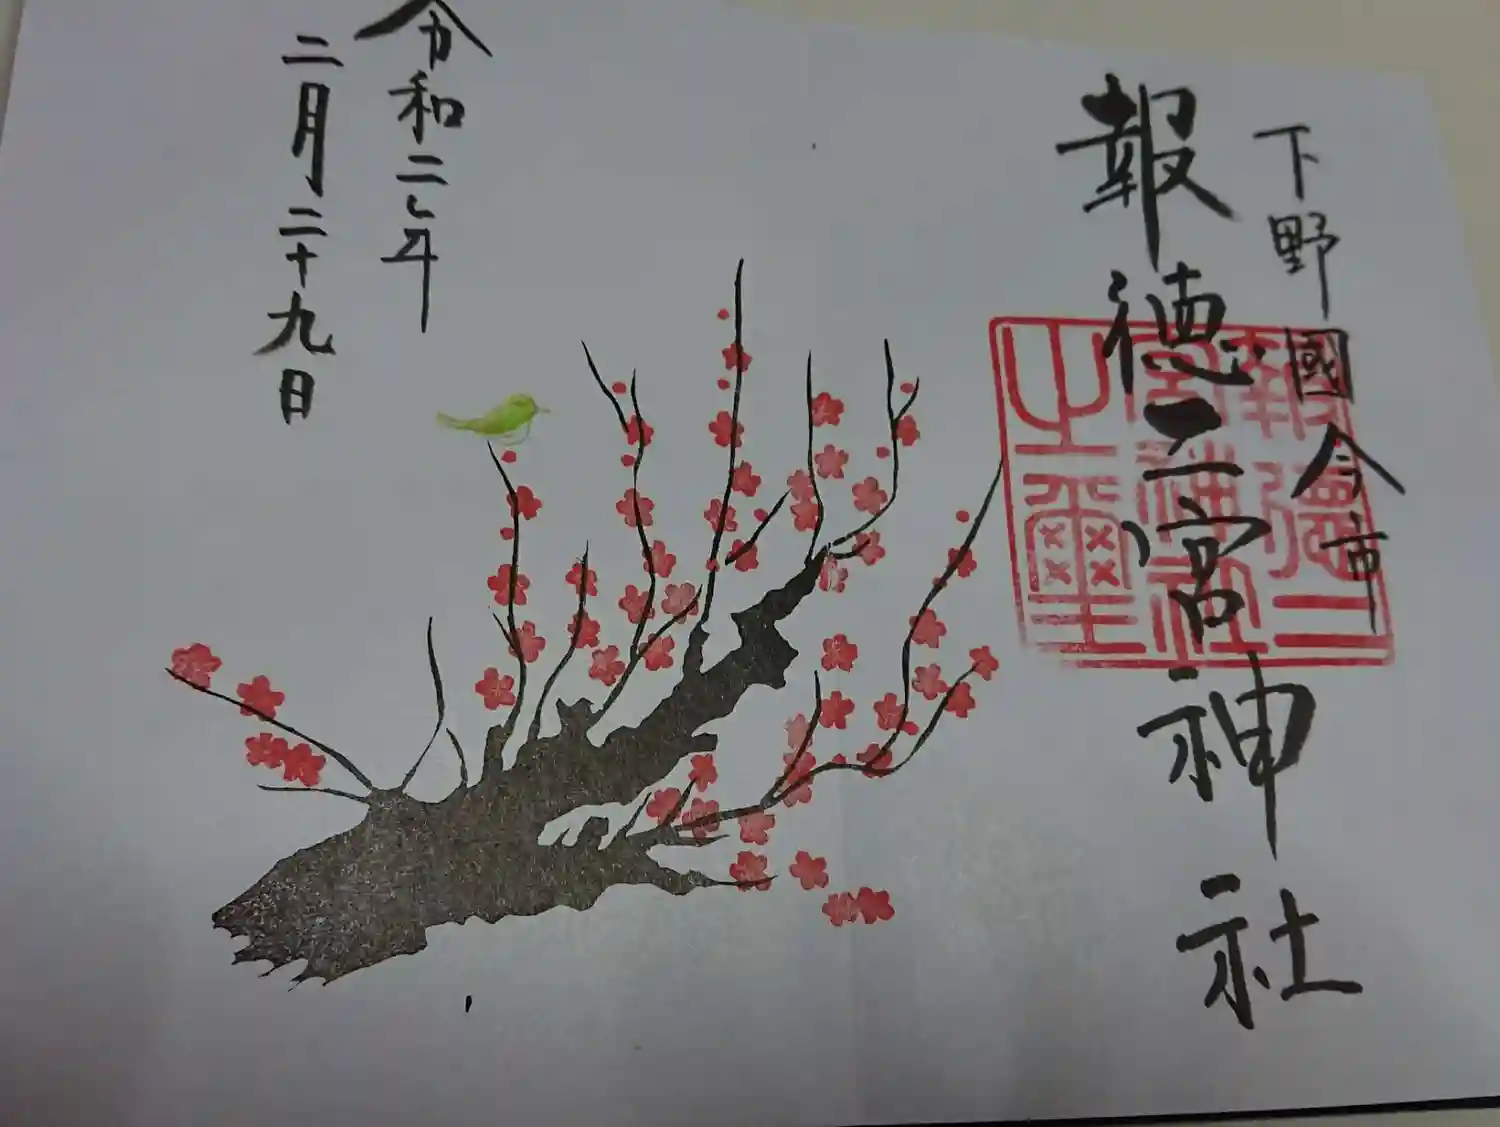 下野國今市
報徳二宮神社
報徳二
宮神社
之璽
令和二年
二月二十九日